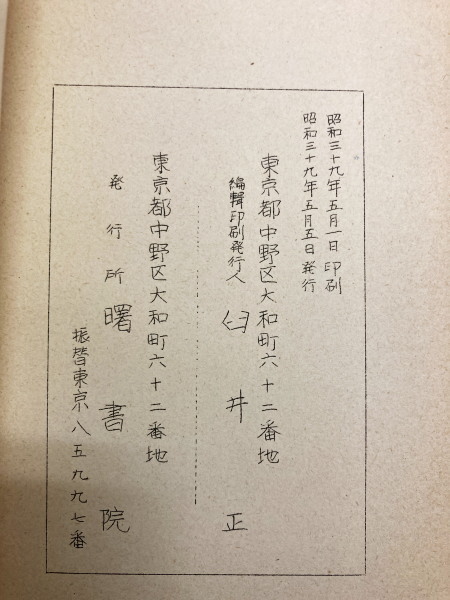 昭和三十九年五月一日印刷
昭和三十九年五月五日発行
東京都中野区大和町六十二番地
編輯印刷発行人 臼井正
東京都中野区大和町六十二番地
発行所 曙書院
振替東京八五九九七番